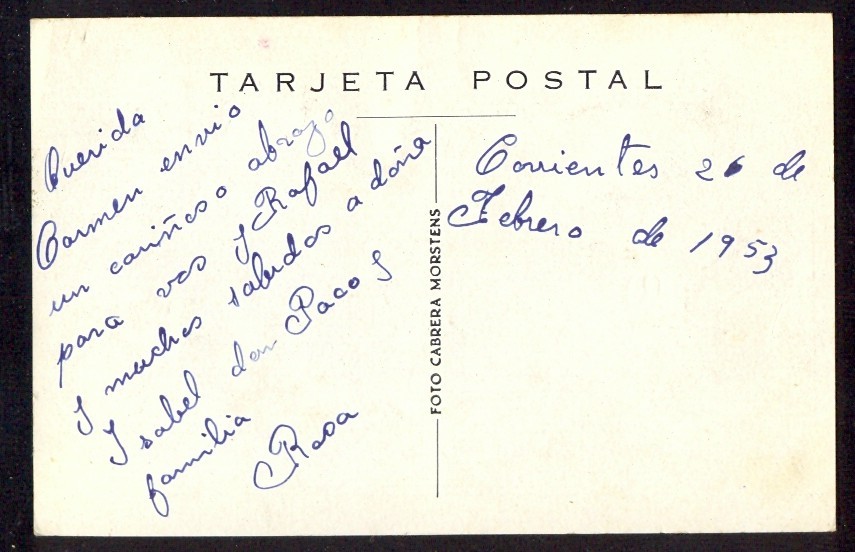 TARJETA POSTAL
Querida
Carmen envio
un cariñoso abrazo
para vos y Rafael
y muchos saludos a doña
Isabel don Paco y
familia
Rosa
FOTO CABRERA MORSTENS
Corrientes 26 de
Febrero de 1953